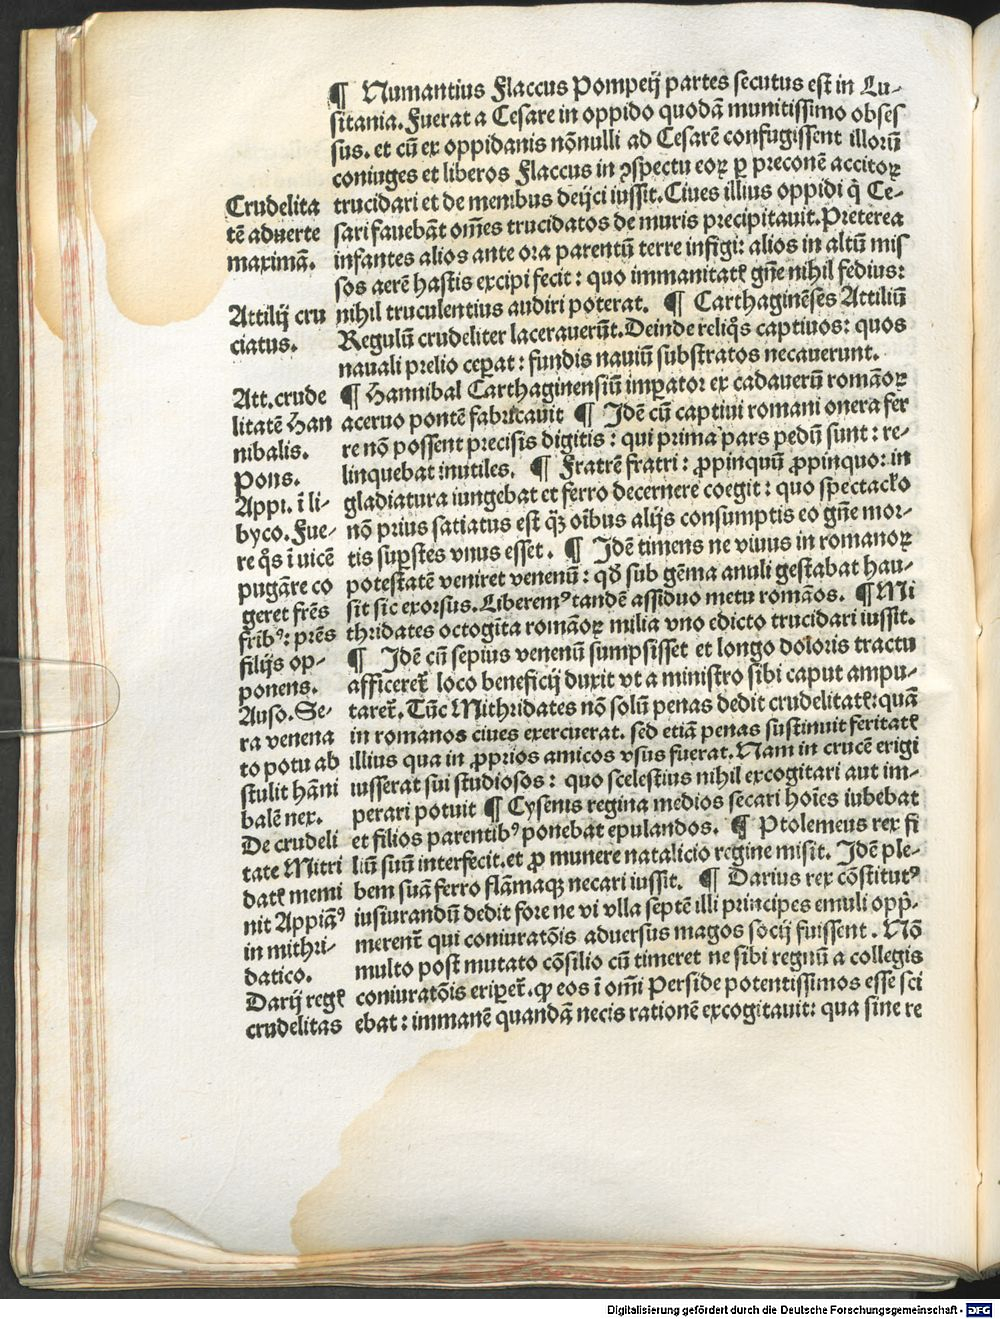 ¶ Numantius Flaccus Pompeij partes secutus est in Lu-
sitania. Fuerat a Cesare in oppido quodā munitissimo obses
sus. et cū ex oppidanis nōnulli ad Cesarē confugissent illorū
coniuges et liberos Flaccus in ꝯspectu eoꝝ ꝑ preconē accitoꝝ
trucidari et de menibus deijci iussit. Ciues illius oppidi q̇ Ce-
sari fauebāt om̄es trucidatos de muris precipitauit. Preterea
infantes alios ante ora parentū terre infigi: alios in altū mis
sos aerē hastis excipi fecit: quo immanitatꝭ gn̄e nihil fedius:
nihil truculentius audiri poterat. ¶ Carthaginēses Attiliū
Regulū crudeliter lacerauerūt. Deinde reliq̇s captiuos: quos
nauali prelio ceꝑat: fundis nauiū substratos necauerunt.
¶ Hannibal Carthaginensiū imꝑator ex cadauerū romāoꝝ
aceruo pontē fabricauit ¶ Idē cū captiui romani onera fer
re nō possent precisis digitis: qui prima pars pedū sunt: re-
linquebat inutiles. ¶ Fratrē fratri: ꝓpinquū ꝓpinquo: in
gladiatura iungebat et ferro decernere coegit: quo spectaclo
nō prius satiatus est qꝫ̄ oībus alijs consumptis eo gn̄e mor-
tis suꝑstes vnus esset. ¶ Idē timens ne viuus in romanoꝝ
potestatē veniret venenū: qd̄ sub gēma anuli gestabat hau-
sit sic exorsus. Liberemꝰ tandē assiduo metu romāos. ¶ Mi
thridates octogīta romāoꝝ milia vno edicto trucidari iussit.
¶ Idē cū sepius venenū sumpsisset et longo doloris tractu
afficeret̄ loco beneficij duxit vt a ministro sibi caput ampu-
taret̄. Tūc Mithridates nō solū penas dedit crudelitatꝭ: quā
in romanos ciues exercuerat. sed etiā penas sustinuit feritatꝭ
illius qua in ꝓprios amicos vsus fuerat. Nam in crucē erigi
iusserat sui studiosos: quo scelestius nihil excogitari aut im-
perari potuit ¶ Cysenis regina medios secari hoīes iubebat
et filios parentibꝰ ponebat epulandos. ¶ Ptolemeus rex fi
liū suū interfecit. et ꝓ munere natalicio regine misit. Idē ple-
bem suā ferro flāmaqꝫ necari iussit. ¶ Darius rex cōstitutꝰ
iusiurandū dedit fore ne vi vlla septē illi principes emuli opp̄-
merent̄ qui coniuratōis aduersus magos socij fuissent. Nō
multo post mutato cōsilio cū timeret ne sibi regnū a collegis
coniuratōis eriꝑet̄. ꝙ eos ī om̄i Perside potentissimos esse sci
ebat: immanē quandā necis rationē excogitauit: qua sine re
Crudelita
tē aduerte
maximā.
Attilij cru
ciatus.
Att. crude
litatē Han
nibalis.
Pons.
Appi. ī li-
byco. Fue-
re q̇s ī uicē
pugāre co
geret fr̄es
fribꝰ: pr̄es
filijs op-
ponens.
Auso. Se-
ra venena
to potu ab
stulit hāni
balē nex.
De crudeli
tate Mitri
datꝭ memi
nit Appiāꝰ
in mithri-
datico.
Darij regꝭ
crudelitas
Digitalisierung gefördert durch die Deutsche Forschungsgemeinschaft - DFG